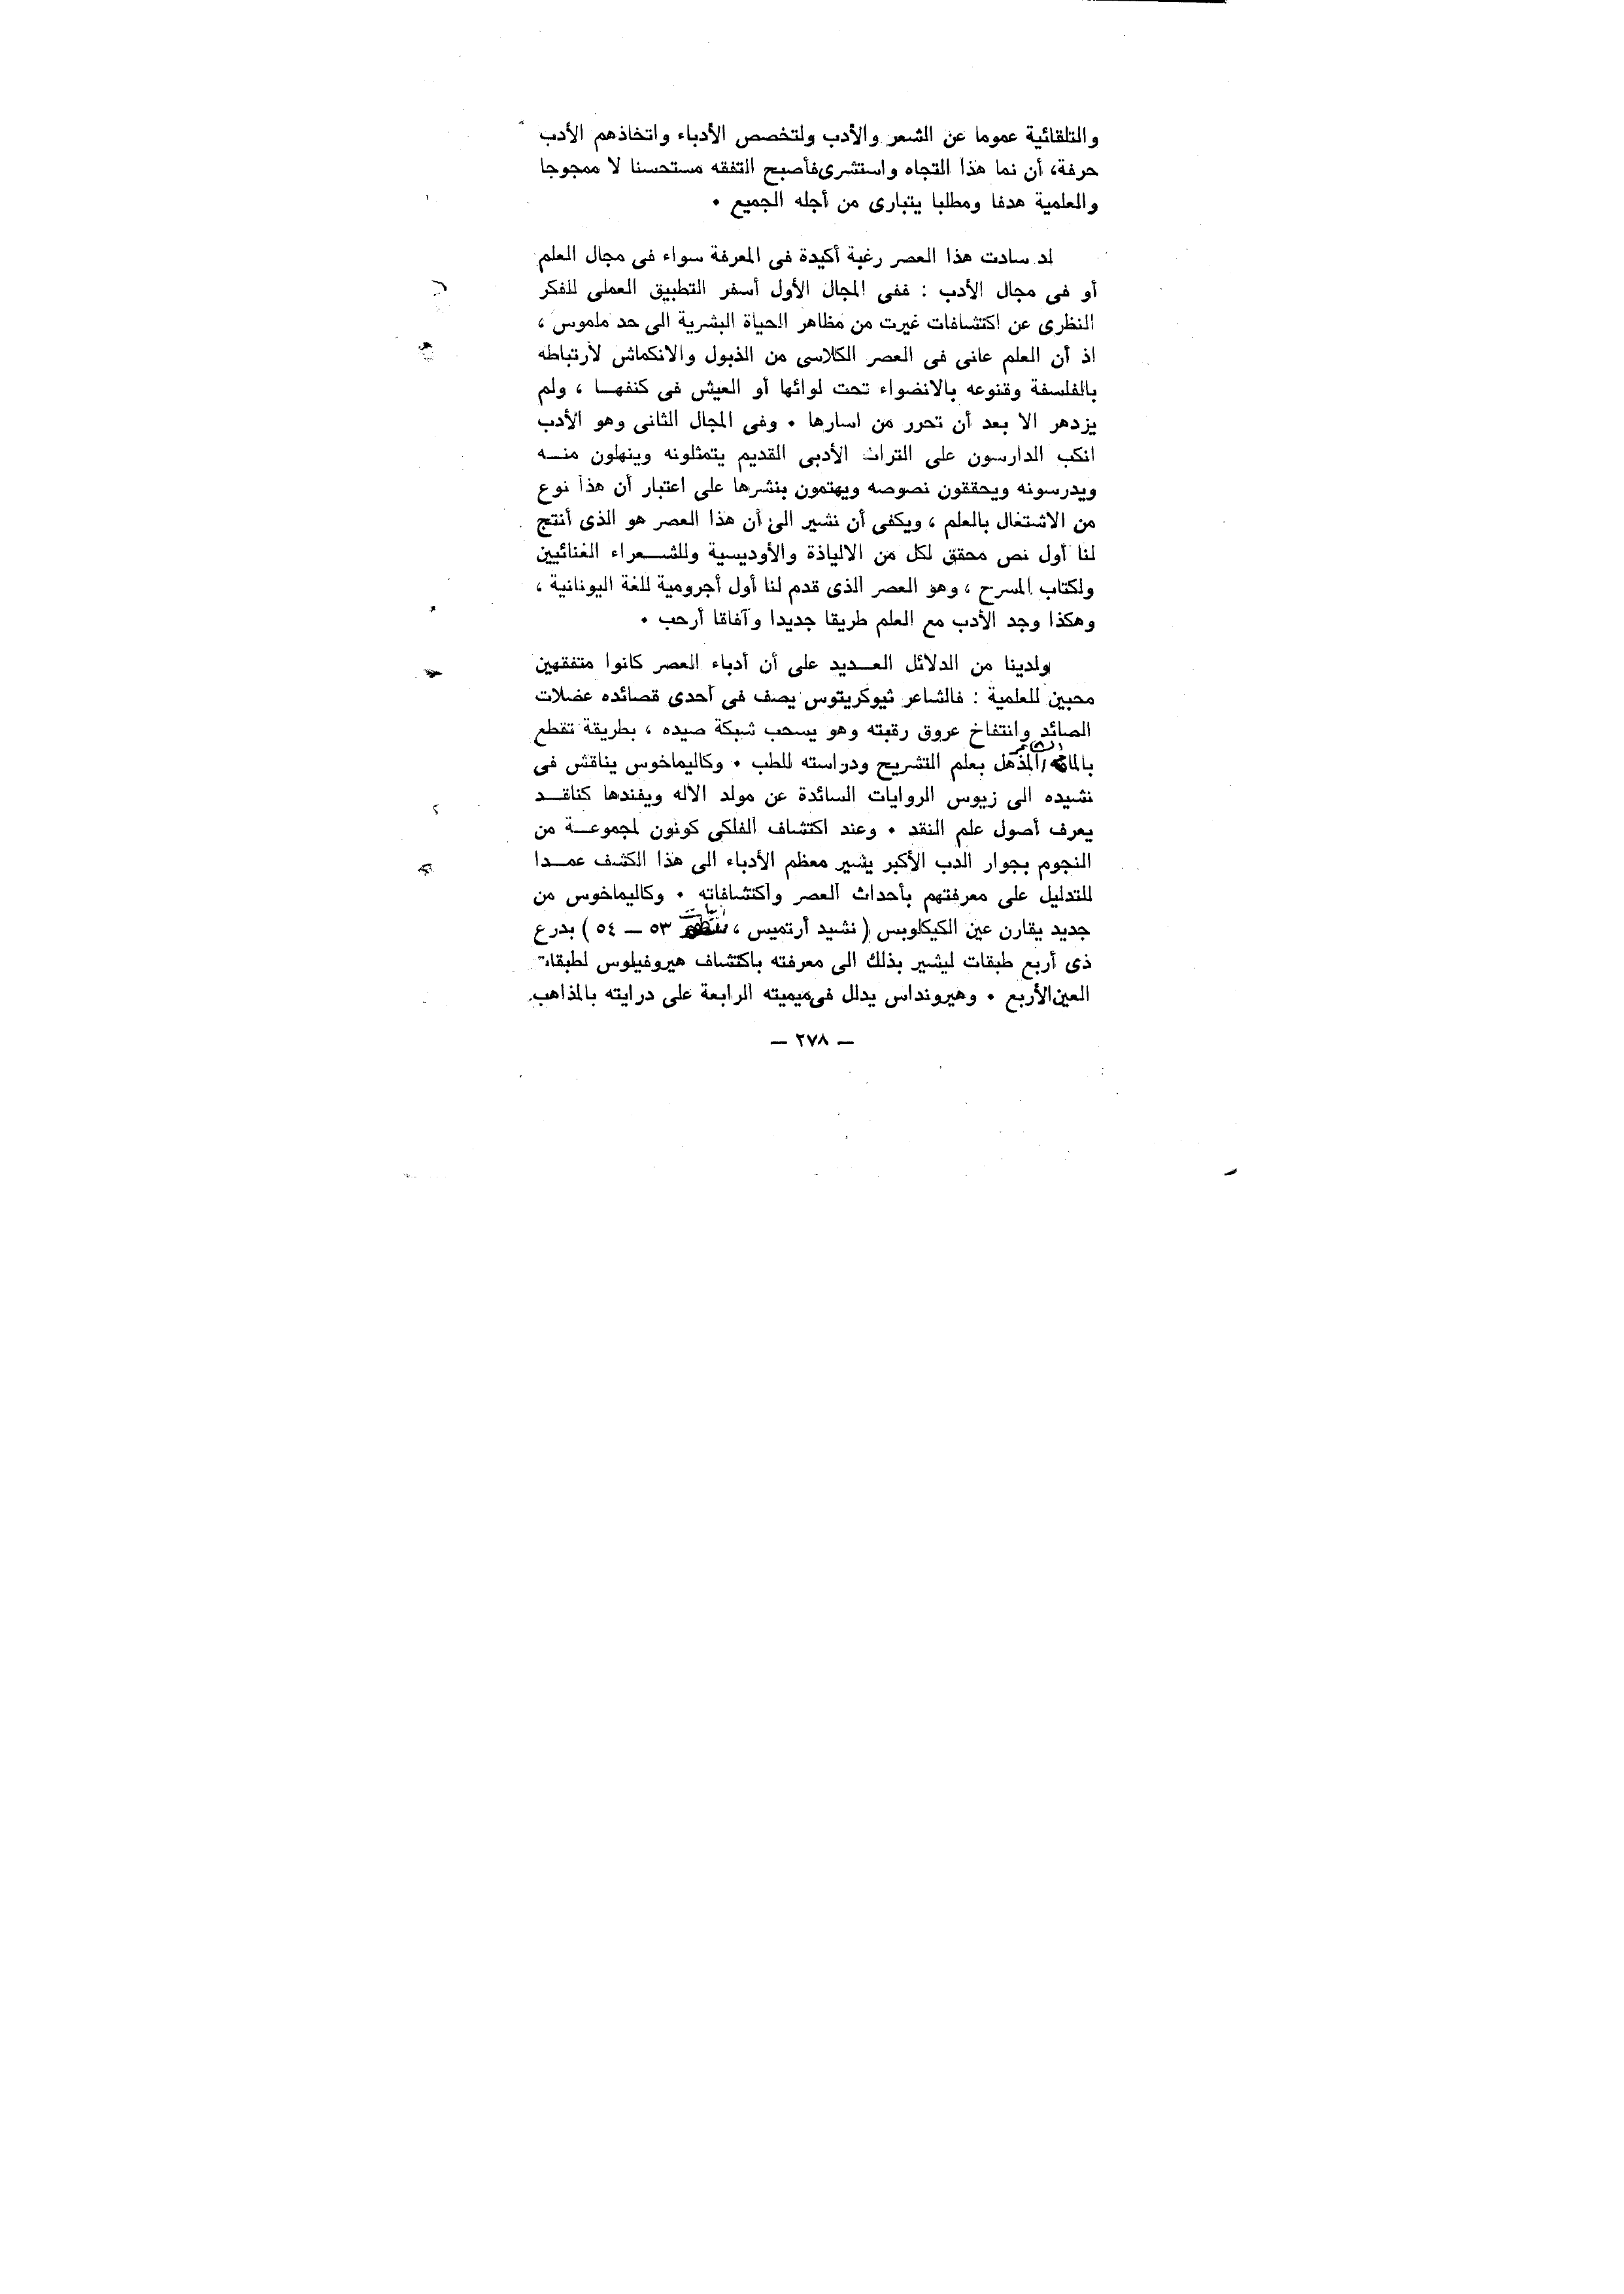 والتلقائية عموما عن الشعر والأدب ولتخصص الأدباء واتخاذهم الأدب
حرفة، أن نما هذا التجاه واستشرى فأصبح التفقه مستحسنا لا ممجوجا
والعلمية هدفا ومطلبا يتبارى من أجله الجميع •
لد سادت هذا العصر رغبة أكيدة فى المعرفة سواء فى مجال العلم
أو فى مجال الأدب : ففى المجال الأول أسفر التطبيق العملى للفكر
النظرى عن اكتشافات غيرت من مظاهر الحياة البشرية الى حد ملموس ،
اذ أن العلم عانى فى العصر الكلاسى من الذبول والانكماش لارتباطه
بالفلسفة وقنوعه بالانضواء تحت لوائها أو العيش فى كنفهـا ، ولم
يزدهر الا بعد أن تحرر من اسارها • وفى المجال الثانى وهو الأدب
انكب الدارسون على التراث الأدبى القديم يتمثلونه وينهلون منـه
ويدرسونه ويحققون نصوصه ويهتمون بنشرها على اعتبار أن هذا نوع
من الاشتغال بالعلم ، ويكفى أن نشير الى أن هذا العصر هو الذى أنتج
لنا أول نص محقق لكل من الالياذة والأوديسية وللشــعراء الغنائيين
ولكتاب المسرح ، وهو العصر الذى قدم لنا أول أجرومية للغة اليونانية ،
وهكذا وجد الأدب مع العلم طريقا جديدا وآفاقا أرحب •
ولدينا من الدلائل العــديد على أن أدباء العصر كانوا متفقهين
محبين للعلمية : فالشاعر ثيوكريتوس يصف فى أحدى قصائده عضلات
الصائد وانتفاخ عروق رقبته وهو يسحب شبكة صيده ، بطريقة تقطع
المذهل بعلم التشريح ودراسته للطب • وكاليماخوس يناقش فى
نشيده الى زيوس الروايات السائدة عن مولد الاله ويفندها كناقـد
يعرف أصول علم النقد • وعند اكتشاف الفلكى كونون لمجموعـة من
النجوم بجوار الدب الأكبر يشير معظم الأدباء الى هذا الكشف عمـدا
للتدليل على معرفتهم بأحداث العصر واكتشافاته • وكاليماخوس من
جديد يقارن عين الكيكلوبس ( نشيد أرتميس ، ٥٣ ــ ٥٤ ) بدرع
ذى أربع طبقات ليشير بذلك الى معرفته باكتشاف هيروفيلوس لطبقات
العين الأربع • وهيرونداس يدلل فى ميميته الرابعة على درايته بالمذاهب
ــ ٢٧٨ ــ